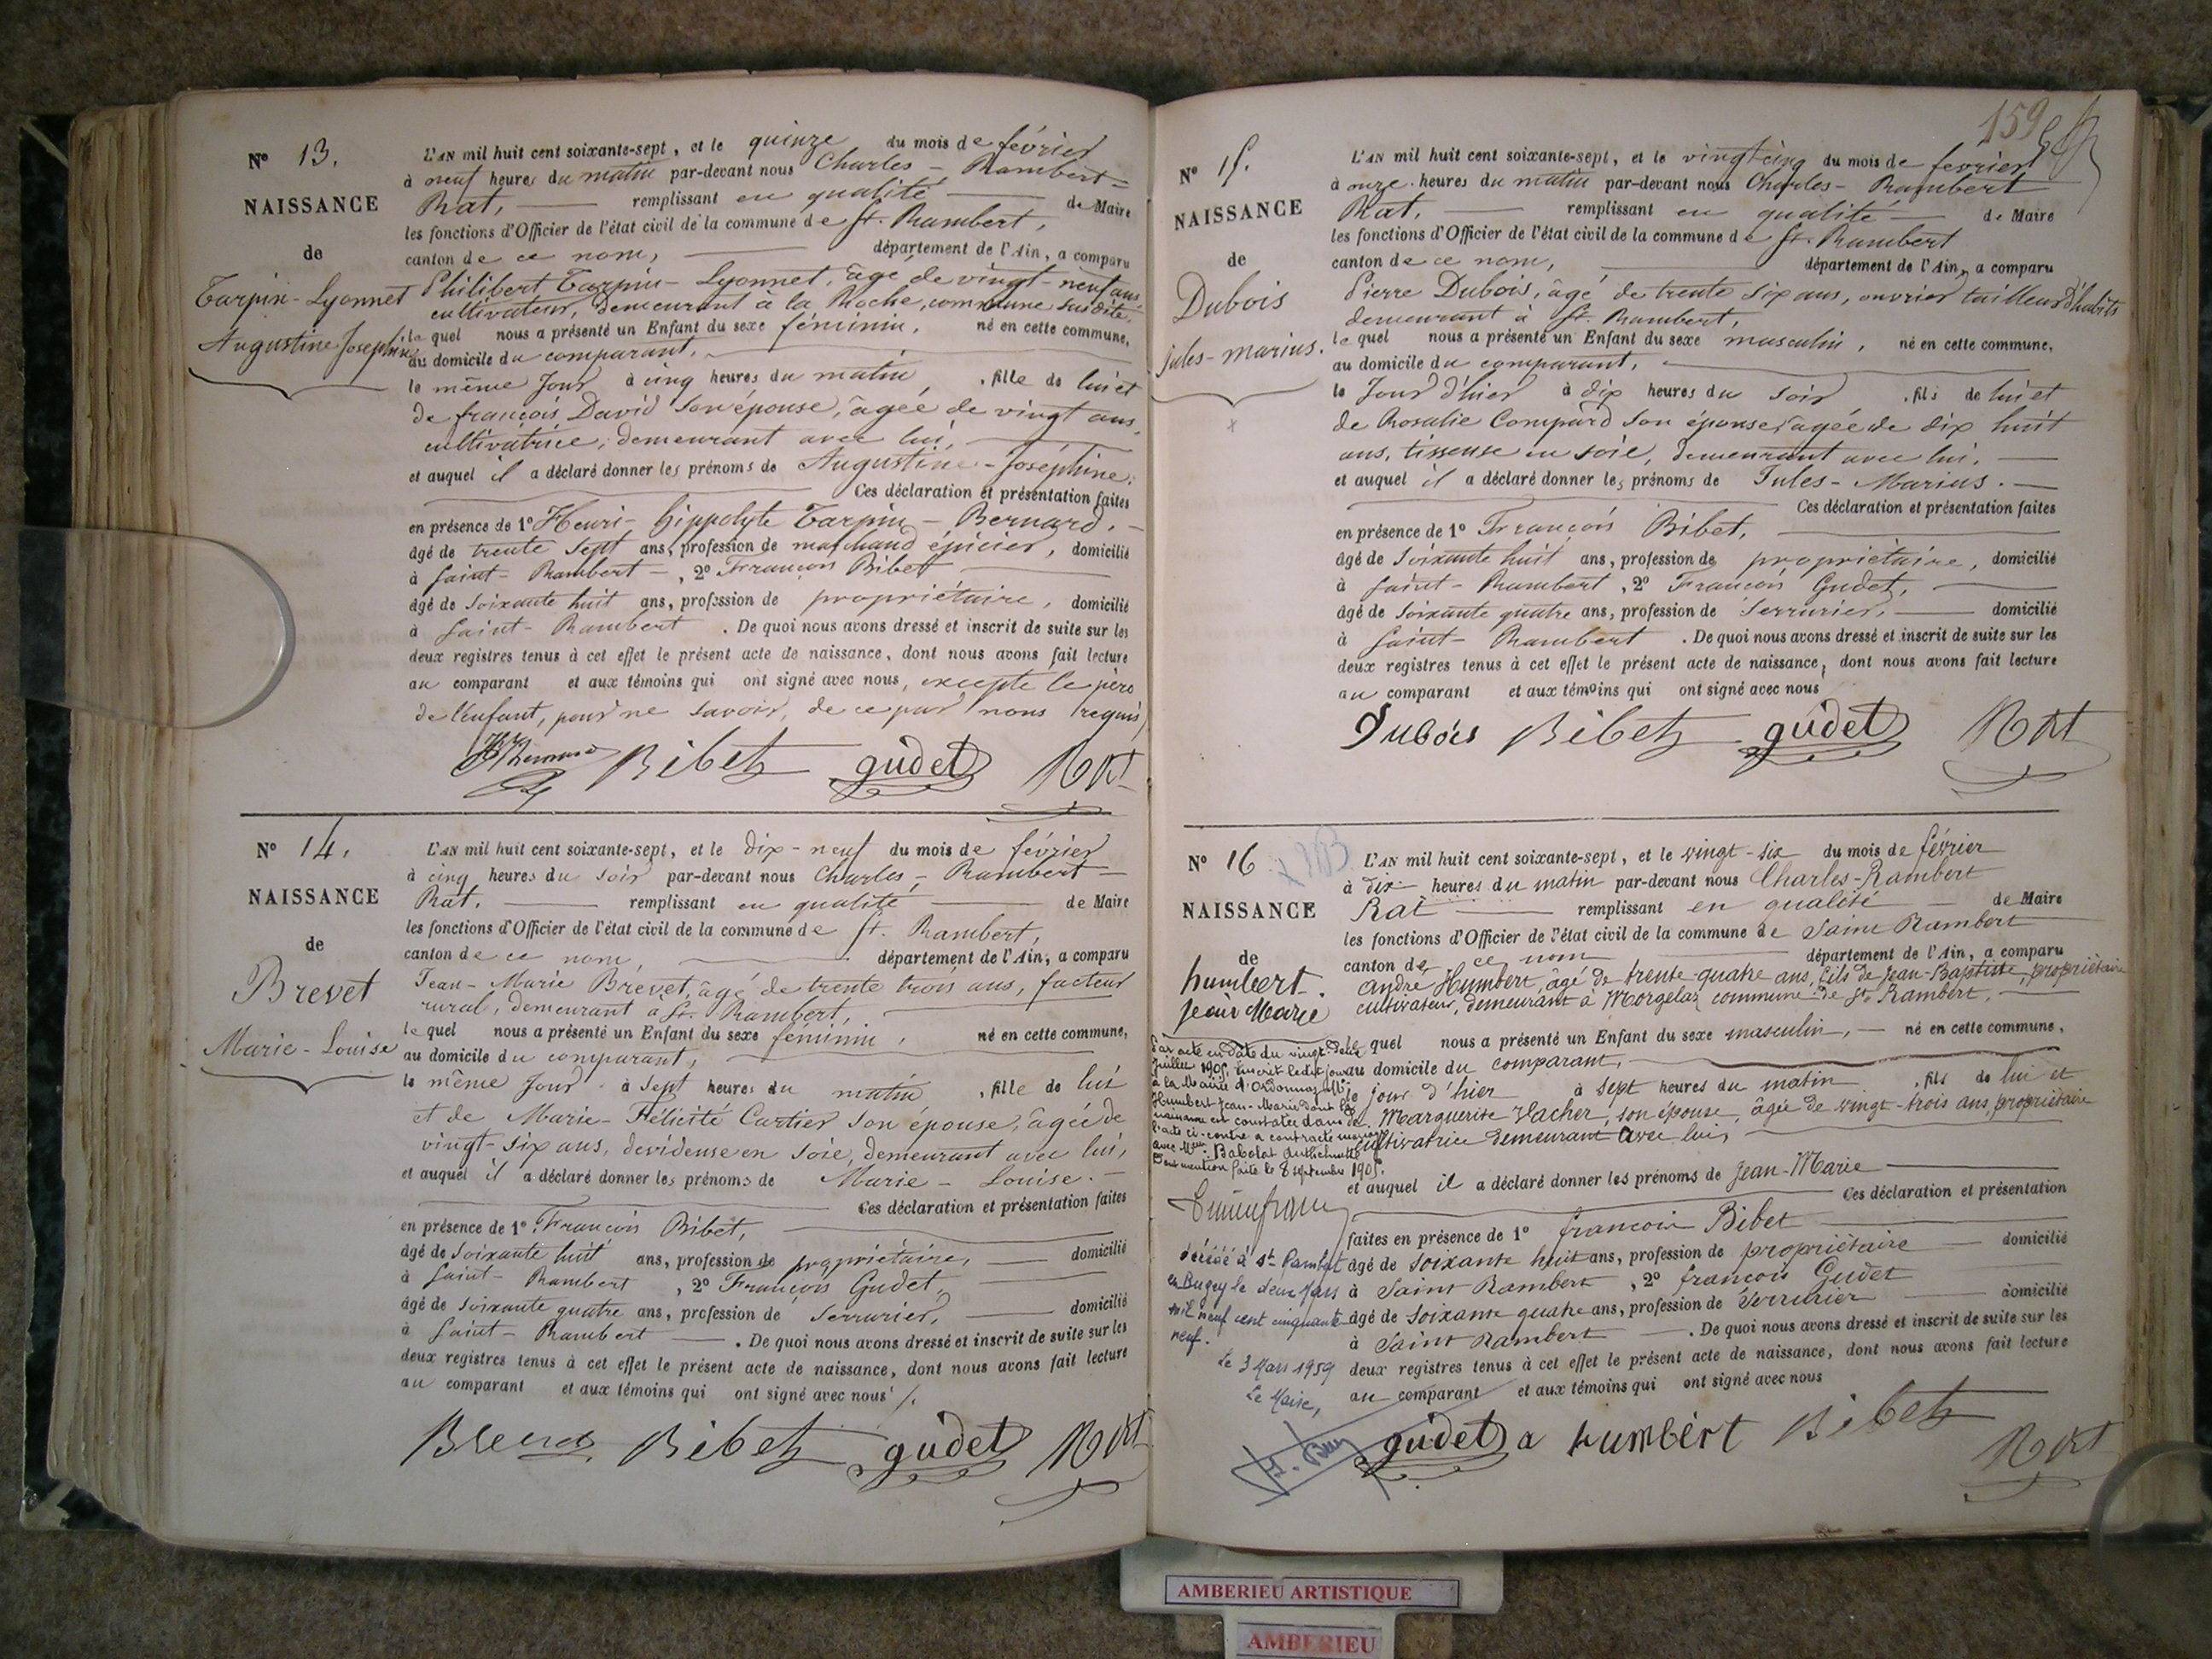 N° 13.
NAISSANCE
de
Tarpin-Lyonnet
Augustine Joséphine
L'AN mil huit cent soixante-sept, et le quinze du mois de février
à neuf heures du matin par-devant nous Charles-Rambert-
Rat, remplissant en qualité de Maire
les fonctions d'Officier de l'état civil de la commune de St. Rambert,
canton de ce nom, département de l'Ain, a comparu
Philibert Tarpin-Lyonnet, âgé de vingt-neuf ans,
cultivateur, demeurant à la Roche, commune susdite,
lequel nous a présenté un Enfant du sexe féminin, né en cette commune,
au domicile du comparant,
le même jour à cinq heures du matin, fille de lui et
de françois David son épouse, âgée de vingt ans,
cultivatrice, demeurant avec lui,
et auquel il a déclaré donner les prénoms de Augustine-Joséphine.
Ces déclaration et présentation faites
en présence de 1° Henri-hippolyte Tarpin-Bernard,
âgé de trente sept ans, profession de marchand épicier, domicilié
à Saint-Rambert, 2° François Bibet
âgé de soixante huit ans, profession de propriétaire, domicilié
à Saint-Rambert. De quoi nous avons dressé et inscrit de suite sur les
deux registres tenus à cet effet le présent acte de naissance, dont nous avons fait lecture
au comparant et aux témoins qui ont signé avec nous, excepté le père
de l'enfant, pour ne savoir, de ce par nous requis,
Bibet gudet Rat
N° 14.
NAISSANCE
de
Brevet
Marie-Louise
L'AN mil huit cent soixante-sept, et le dix-neuf du mois de février
à cinq heures du soir par-devant nous Charles-Rambert-
Rat, remplissant en qualité de Maire
les fonctions d'Officier de l'état civil de la commune de St. Rambert,
canton de ce nom, département de l'Ain, a comparu
Jean-Marie Brevet, âgé de trente trois ans, facteur
rural, demeurant à St. Rambert,
lequel nous a présenté un Enfant du sexe féminin, né en cette commune,
au domicile du comparant,
le même jour à sept heures du matin, fille de lui
et de Marie-Félicité Cartier son épouse, âgée de
vingt-six ans, devideuse en soie, demeurant avec lui,
et auquel il a déclaré donner les prénoms de Marie-Louise.
Ces déclaration et présentation faites
en présence de 1° François Bibet,
âgé de soixante huit ans, profession de propriétaire, domicilié
à Saint-Rambert, 2° François Gudet,
âgé de soixante quatre ans, profession de serrurier, domicilié
à Saint-Rambert. De quoi nous avons dressé et inscrit de suite sur les
deux registres tenus à cet effet le présent acte de naissance, dont nous avons fait lecture
au comparant et aux témoins qui ont signé avec nous
Brevet Bibet gudet Rat
159
N° 15.
NAISSANCE
de
Dubois
jules-marius.
L'AN mil huit cent soixante-sept, et le vingt cinq du mois de fevrier
à onze heures du matin par-devant nous Charles-Rambert
Rat, remplissant en qualité de Maire
les fonctions d'Officier de l'état civil de la commune de St. Rambert
canton de ce nom, département de l'Ain, a comparu
Pierre Dubois, âgé de trente six ans, ouvrier tailleur d'habits
demeurant à St. Rambert,
lequel nous a présenté un Enfant du sexe masculin, né en cette commune,
au domicile du comparant,
le jour d'hier à dix heures du soir, fils de lui et
de Rosalie Compard son épouse, âgée de dix huit
ans, tisseuse en soie, demeurant avec lui,
et auquel il a déclaré donner les prénoms de Jules-Marius.
Ces déclaration et présentation faites
en présence de 1° François Bibet,
âgé de soixante huit ans, profession de propriétaire, domicilié
à Saint-Rambert, 2° François Gudet,
âgé de soixante quatre ans, profession de serrurier, domicilié
à Saint-Rambert. De quoi nous avons dressé et inscrit de suite sur les
deux registres tenus à cet effet le présent acte de naissance, dont nous avons fait lecture
au comparant et aux témoins qui ont signé avec nous
Dubois Bibet gudet Rat
N° 16
NAISSANCE
de
humbert.
Jean Marie
L'AN mil huit cent soixante-sept, et le vingt-six du mois de février
à dix heures du matin par-devant nous Charles-Rambert
Rat remplissant en qualité de Maire
les fonctions d'Officier de l'état civil de la commune de Saint Rambert
canton de ce nom département de l'Ain, a comparu
andré Humbert, âgé de trente-quatre ans, fils de Jean-Baptiste, propriétaire
cultivateur, demeurant à Morgelaz commune de St. Rambert,
lequel nous a présenté un Enfant du sexe masculin, né en cette commune,
au domicile du comparant,
le jour d'hier à sept heures du matin, fils de lui et
de Marguerite Vacher, son épouse, âgée de vingt-trois ans, propriétaire
cultivatrice demeurant avec lui,
et auquel il a déclaré donner les prénoms de Jean-Marie
Ces déclaration et présentation
faites en présence de 1° francois Bibet
âgé de soixante huit ans, profession de propriétaire domicilié
à Saint Rambert, 2° francois Gudet
âgé de soixante quatre ans, profession de serrurier domicilié
à Saint Rambert. De quoi nous avons dressé et inscrit de suite sur les
deux registres tenus à cet effet le présent acte de naissance, dont nous avons fait lecture
au comparant et aux témoins qui ont signé avec nous
gudet a humbert Bibet
Rat
Par acte en date du vingt-deux
juillet 1905, inscrit ledit jour
à la Mairie d'Ordonnaz, Mr
Humbert Jean-Marie dont la
naissance est constatée dans
l'acte ci-contre a contracté mariage
avec Babolat
Dont mention faite le 8 septembre 1905.
décédé à St Rambert
en Bugey le deux Mars
mil neuf cent cinquante
neuf.
Le 3 Mars 1959
Le Maire,
AMBERIEU ARTISTIQUE
AMBERIEU